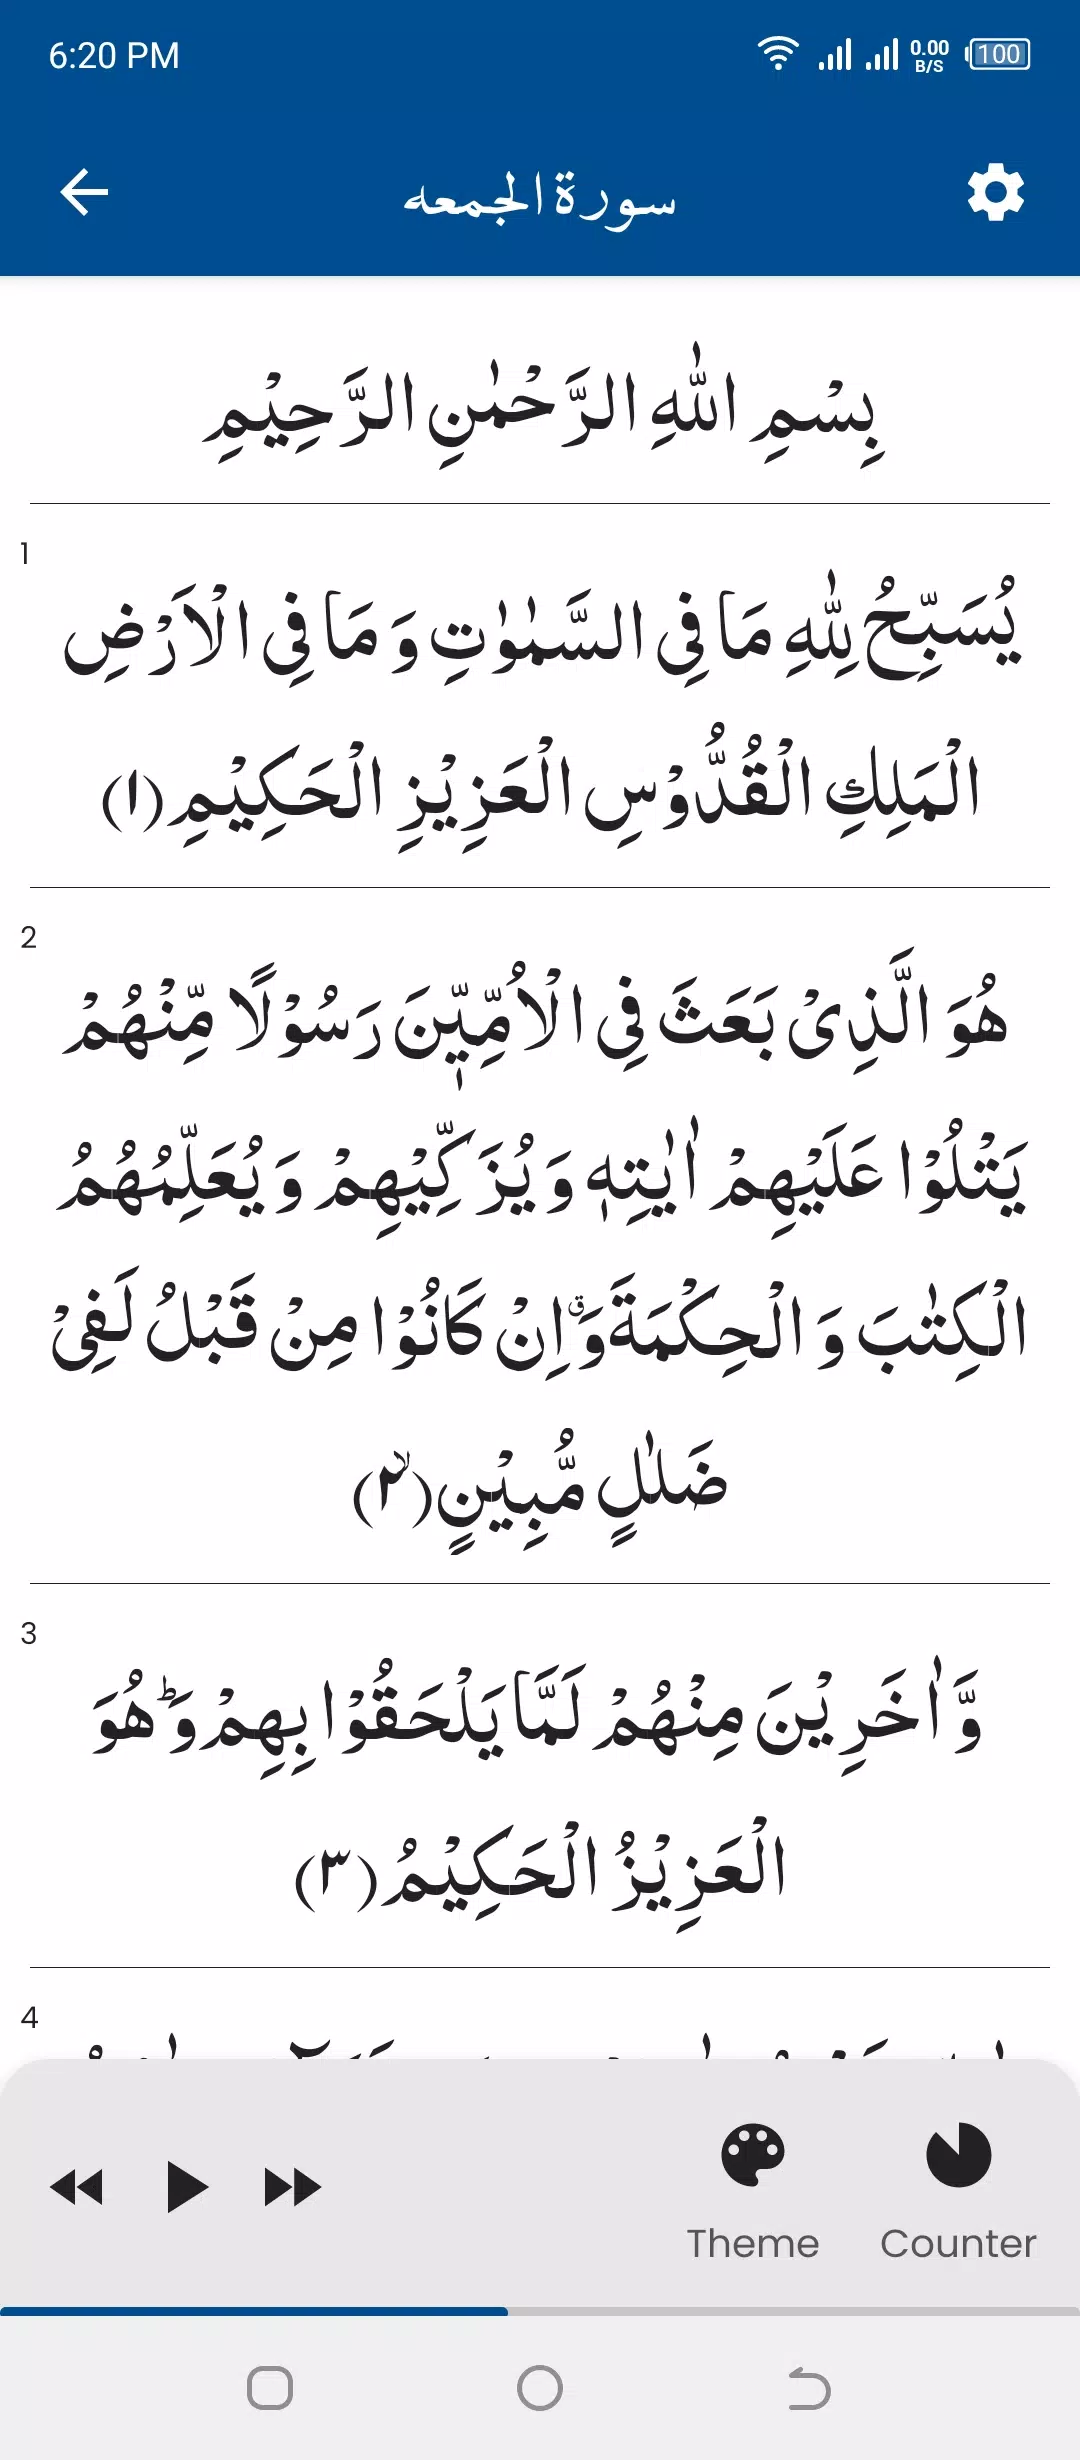 6:20 PM
0.00 B/S
100
سورة الجمعه
بِسْمِ اللّٰهِ الرَّحْمٰنِ الرَّحِيْمِ
1
يُسَبِّحُ لِلّٰهِ مَا فِی السَّمٰوٰتِ وَ مَا فِی الْاَرْضِ
الْمَلِكِ الْقُدُّوْسِ الْعَزِيْزِ الْحَكِيْمِ(۱)
2
هُوَ الَّذِیْ بَعَثَ فِی الْاُمِّیّٖنَ رَسُوْلًا مِّنْهُمْ
یَتْلُوْا عَلَیْهِمْ اٰیٰتِهٖ وَ یُزَكِّیْهِمْ وَ یُعَلِّمُهُمُ
الْكِتٰبَ وَ الْحِكْمَةَۗ وَ اِنْ كَانُوْا مِنْ قَبْلُ لَفِیْ
ضَلٰلٍ مُّبِیْنٍ(۲)ۙ
3
وَّ اٰخَرِیْنَ مِنْهُمْ لَمَّا یَلْحَقُوْا بِهِمْؕ وَ هُوَ
الْعَزِیْزُ الْحَكِیْمُ(۳)
4
Theme
Counter